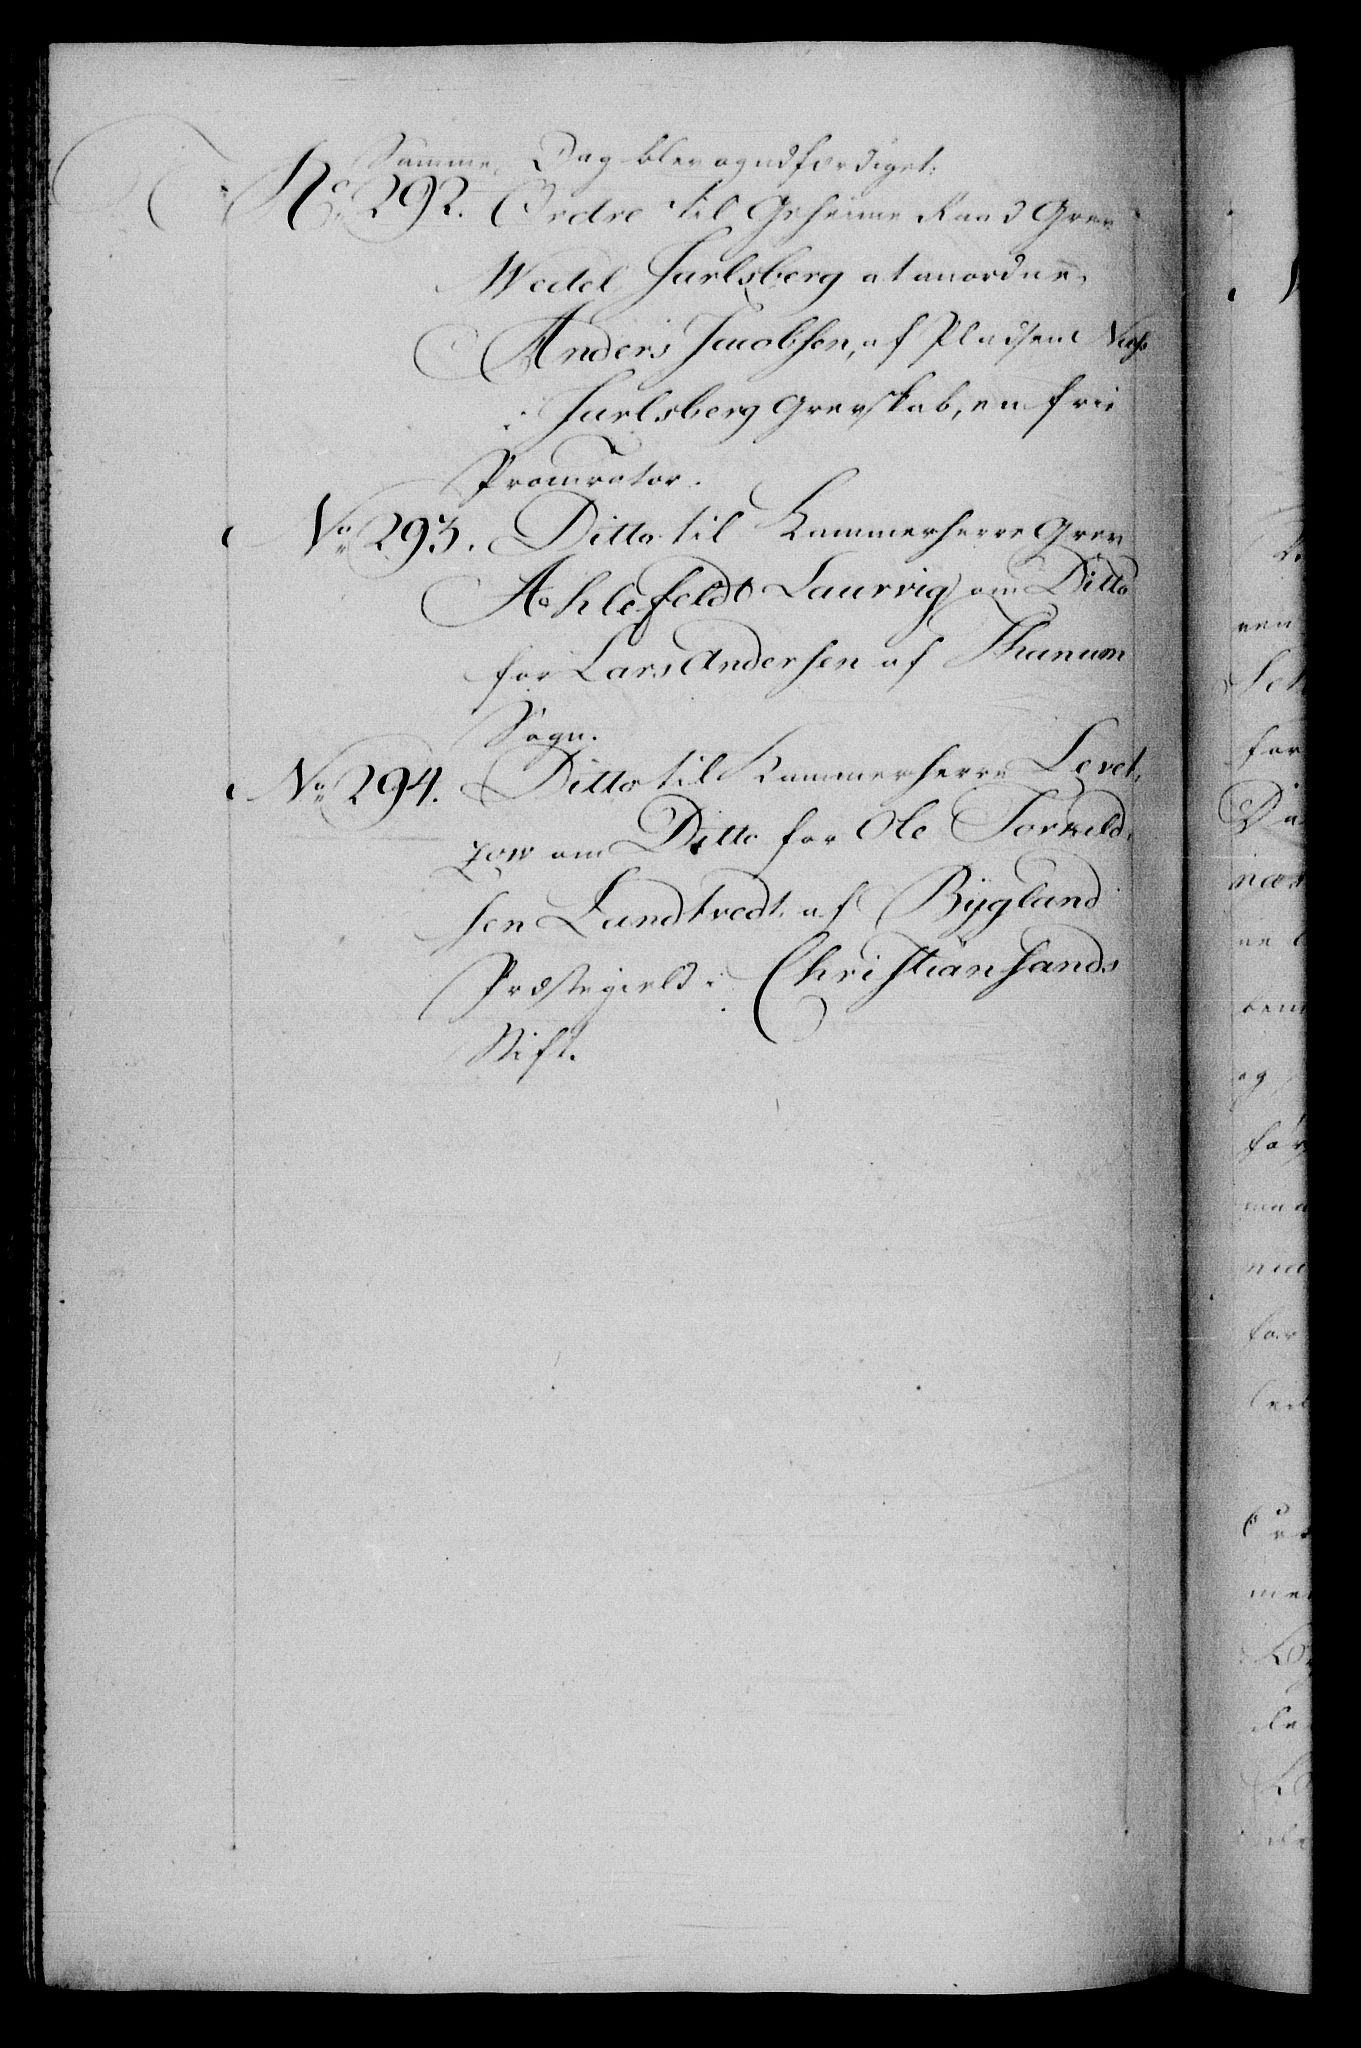 Samme Dag blev og udfærdiget:
No 292. Ordre til Geheime Raad Grev
Wedel Jarlsberg at anordne
Anders Jacobsen, af Pladsen
i Jarlsberg Grevskab, en frie
Procurator.
No 293. Ditto til Kammerherre Grev
Ahlefeldt Laurvig om Ditto
for Lars Andersen af Thanum
Sogn.
No 294. Ditto til Kammerherre Levet-
zow om Ditto for Ole Torkild-
sen Landtvedt af Bÿgland
Præstegield i Christiansands
Stift.